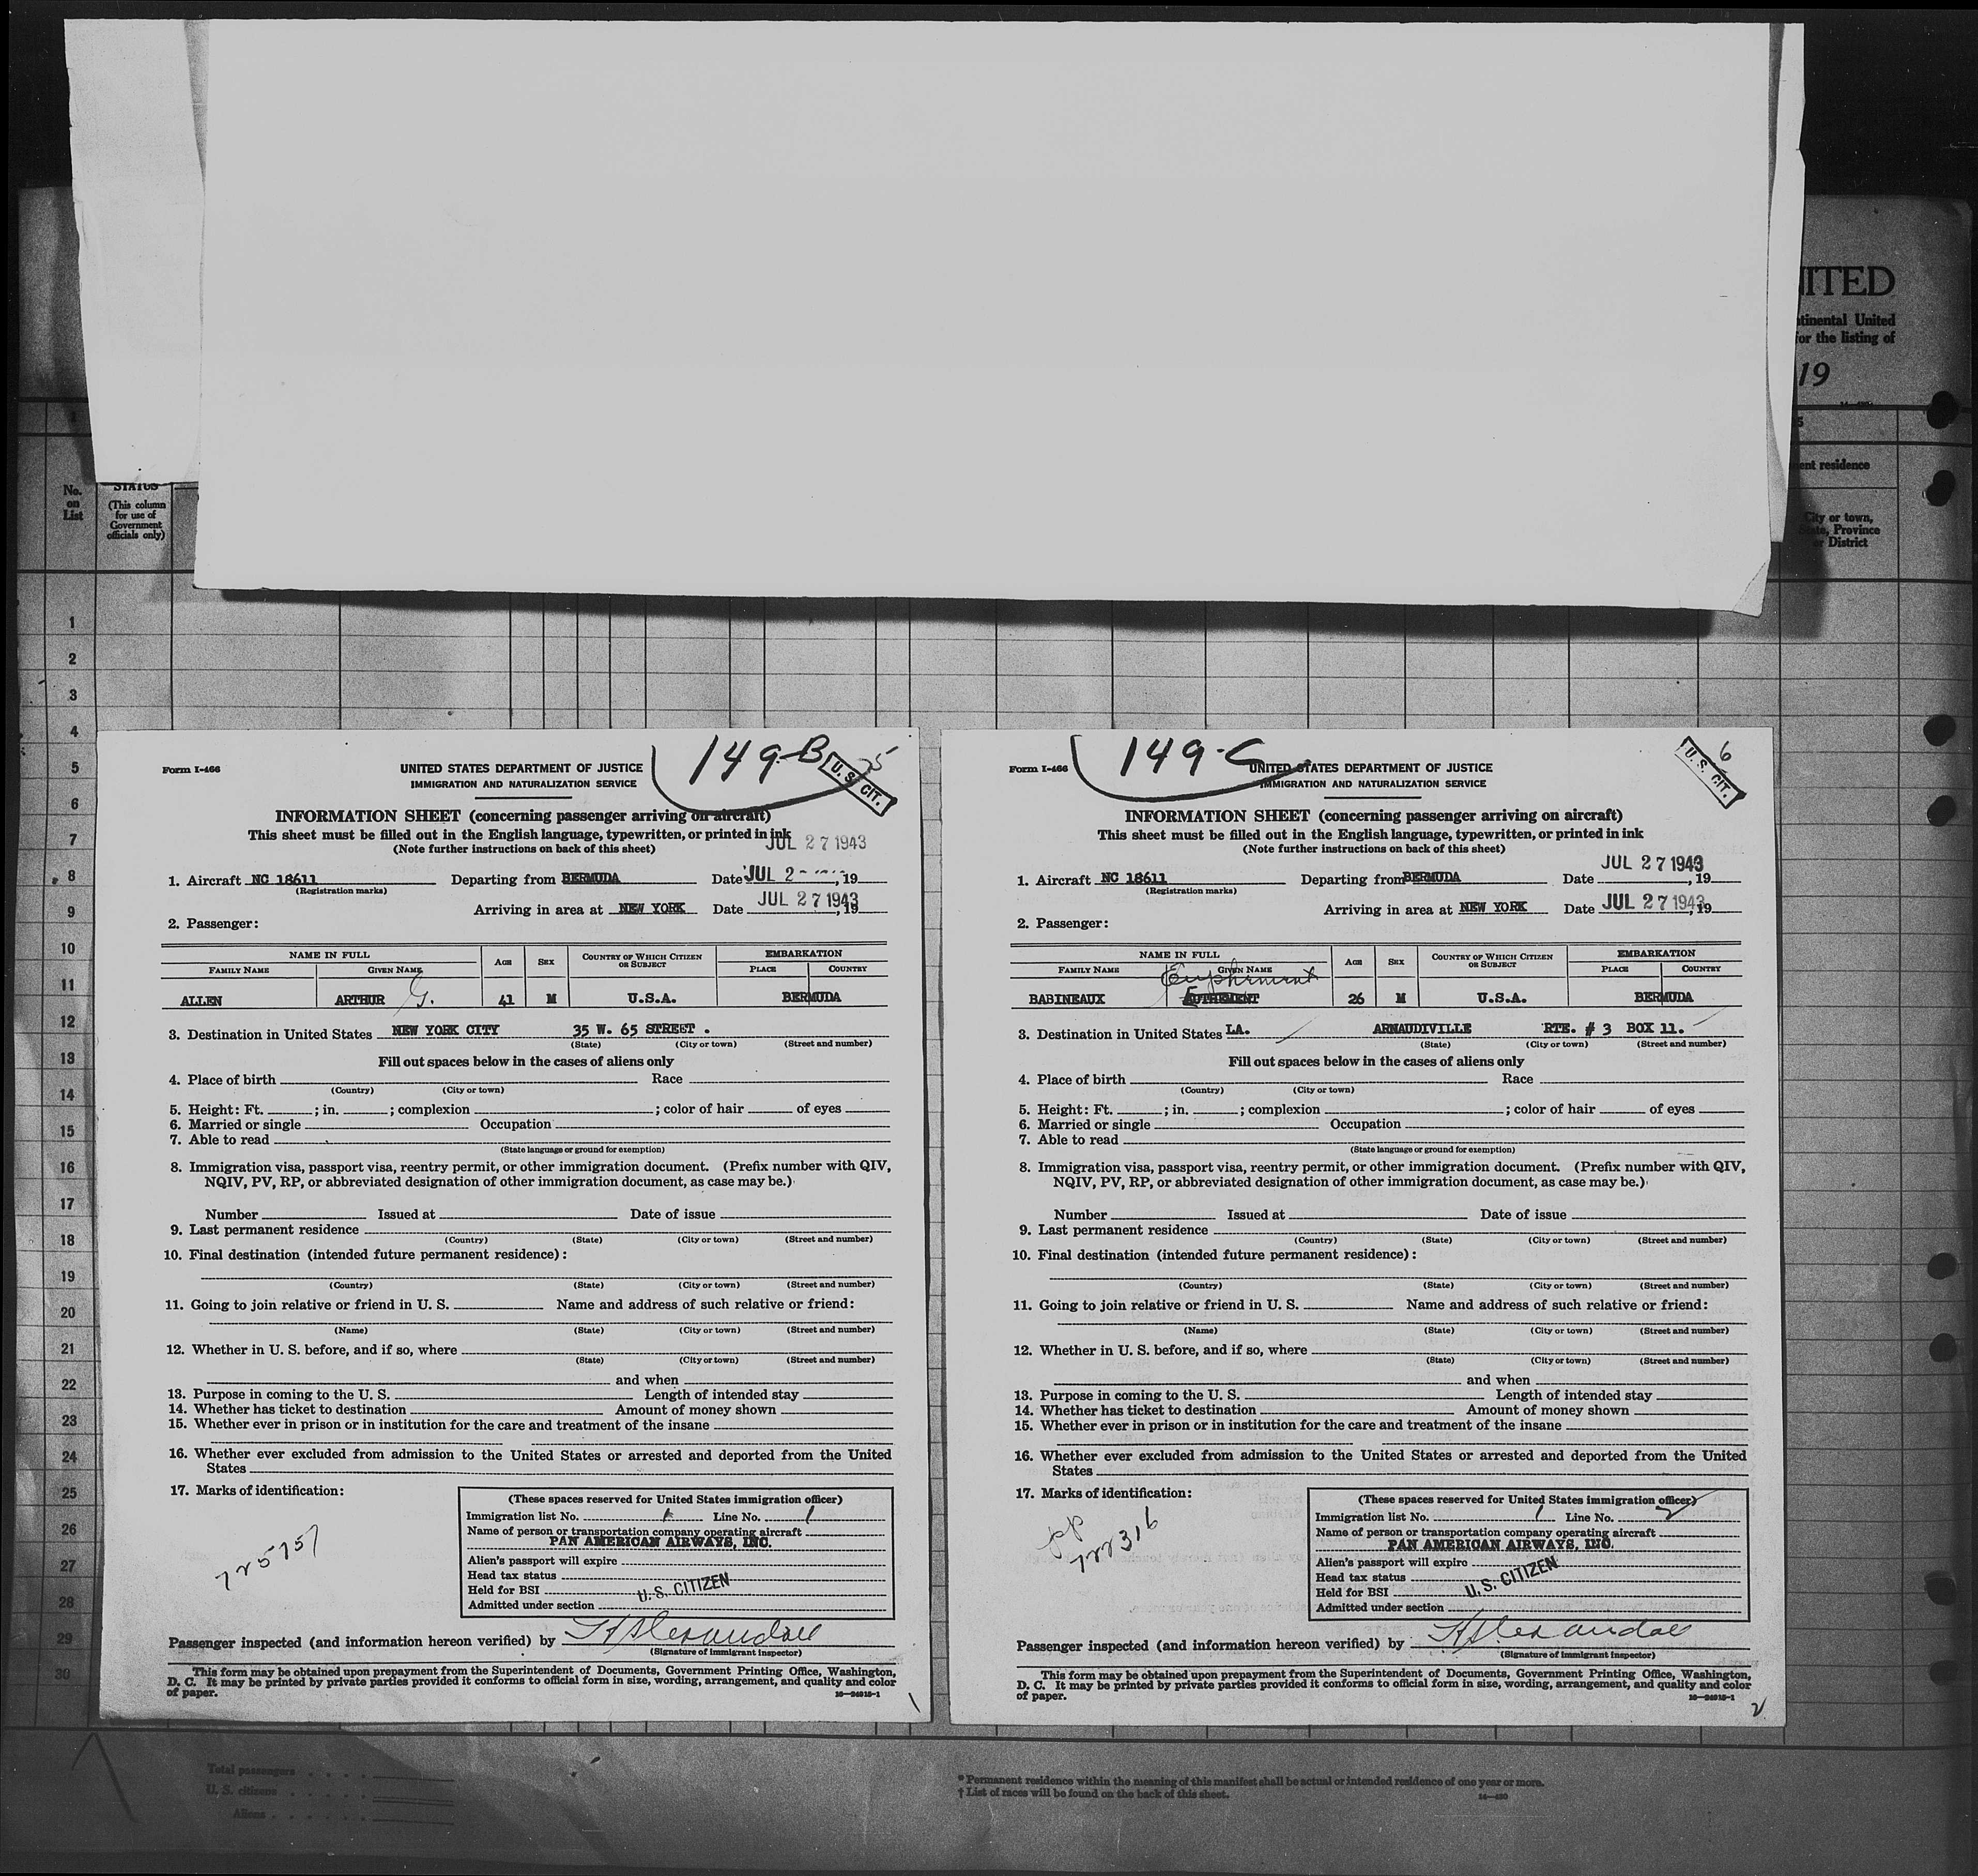 ITED
tinental United
for the listing of
19
ent residence
City or town,
State, Province
or District
No.
on
List
STATUS
(This column
for use of
Government
officials only)
1
2
3
4
5
6
7
8
9
10
11
12
13
14
15
16
17
18
19
20
21
22
23
24
25
26
27
28
29
30
149-B
5
U. S. CIT.
Form I-466
UNITED STATES DEPARTMENT OF JUSTICE
IMMIGRATION AND NATURALIZATION SERVICE
INFORMATION SHEET (concerning passenger arriving on aircraft)
This sheet must be filled out in the English language, typewritten, or printed in ink
(Note further instructions on back of this sheet)
JUL 27 1943
1. Aircraft NC 18611 Departing from BERMUDA Date JUL 2 , 19
(Registration marks)
JUL 27 1943
Arriving in area at NEW YORK Date , 19
2. Passenger:
NAME IN FULL AGE SEX COUNTRY OF WHICH CITIZEN OR SUBJECT EMBARKATION
FAMILY NAME GIVEN NAME PLACE COUNTRY
ALLEN ARTHUR G. 41 M U.S.A. BERMUDA
3. Destination in United States NEW YORK CITY 35 W. 65 STREET .
(State) (City or town) (Street and number)
Fill out spaces below in the cases of aliens only
4. Place of birth Race
(Country) (City or town)
5. Height: Ft. ; in. ; complexion ; color of hair of eyes
6. Married or single Occupation
7. Able to read
(State language or ground for exemption)
8. Immigration visa, passport visa, reentry permit, or other immigration document. (Prefix number with QIV,
NQIV, PV, RP, or abbreviated designation of other immigration document, as case may be.)
Number Issued at Date of issue
9. Last permanent residence
(Country) (State) (City or town) (Street and number)
10. Final destination (intended future permanent residence):
(Country) (State) (City or town) (Street and number)
11. Going to join relative or friend in U. S. Name and address of such relative or friend:
(Name) (State) (City or town) (Street and number)
12. Whether in U. S. before, and if so, where
(State) (City or town) (Street and number)
and when
13. Purpose in coming to the U. S. Length of intended stay
14. Whether has ticket to destination Amount of money shown
15. Whether ever in prison or in institution for the care and treatment of the insane
16. Whether ever excluded from admission to the United States or arrested and deported from the United
States
17. Marks of identification:
(These spaces reserved for United States immigration officer)
Immigration list No. 1 Line No. 1
Name of person or transportation company operating aircraft
PAN AMERICAN AIRWAYS, INC.
Alien's passport will expire
Head tax status
Held for BSI
U. S. CITIZEN
Admitted under section
Passenger inspected (and information hereon verified) by
(Signature of immigrant inspector)
This form may be obtained upon prepayment from the Superintendent of Documents, Government Printing Office, Washington,
D. C. It may be printed by private parties provided it conforms to official form in size, wording, arrangement, and quality and color
of paper.
16—24915-1
1
149-C
6
U. S. CIT.
Form I-466
UNITED STATES DEPARTMENT OF JUSTICE
IMMIGRATION AND NATURALIZATION SERVICE
INFORMATION SHEET (concerning passenger arriving on aircraft)
This sheet must be filled out in the English language, typewritten, or printed in ink
(Note further instructions on back of this sheet)
JUL 27 1943
1. Aircraft NC 18611 Departing from BERMUDA Date , 19
(Registration marks)
Arriving in area at NEW YORK Date JUL 27 1943, 19
2. Passenger:
NAME IN FULL AGE SEX COUNTRY OF WHICH CITIZEN OR SUBJECT EMBARKATION
FAMILY NAME GIVEN NAME PLACE COUNTRY
Euphement
BABINEAUX EUTHEMENT 26 M U.S.A. BERMUDA
3. Destination in United States LA. ARNAUDIVILLE RTE. # 3 BOX 11.
(State) (City or town) (Street and number)
Fill out spaces below in the cases of aliens only
4. Place of birth Race
(Country) (City or town)
5. Height: Ft. ; in. ; complexion ; color of hair of eyes
6. Married or single Occupation
7. Able to read
(State language or ground for exemption)
8. Immigration visa, passport visa, reentry permit, or other immigration document. (Prefix number with QIV,
NQIV, PV, RP, or abbreviated designation of other immigration document, as case may be.)
Number Issued at Date of issue
9. Last permanent residence
(Country) (State) (City or town) (Street and number)
10. Final destination (intended future permanent residence):
(Country) (State) (City or town) (Street and number)
11. Going to join relative or friend in U. S. Name and address of such relative or friend:
(Name) (State) (City or town) (Street and number)
12. Whether in U. S. before, and if so, where
(State) (City or town) (Street and number)
and when
13. Purpose in coming to the U. S. Length of intended stay
14. Whether has ticket to destination Amount of money shown
15. Whether ever in prison or in institution for the care and treatment of the insane
16. Whether ever excluded from admission to the United States or arrested and deported from the United
States
17. Marks of identification:
PP
722316
(These spaces reserved for United States immigration officer)
Immigration list No. 1 Line No. 2
Name of person or transportation company operating aircraft
PAN AMERICAN AIRWAYS, INC.
Alien's passport will expire
Head tax status
Held for BSI
U. S. CITIZEN
Admitted under section
Passenger inspected (and information hereon verified) by
(Signature of immigrant inspector)
This form may be obtained upon prepayment from the Superintendent of Documents, Government Printing Office, Washington,
D. C. It may be printed by private parties provided it conforms to official form in size, wording, arrangement, and quality and color
of paper.
16—24915-1
2
Total passengers
U. S. citizens
Aliens
* Permanent residence within the meaning of this manifest shall be actual or intended residence of one year or more.
† List of races will be found on the back of this sheet.